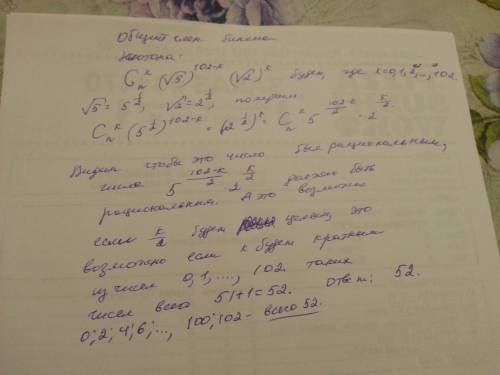 Общий член бинома
Ньютона:
C_n^k (√5)^{102-k} (√2)^k будем, где k=0,1,2,...,102.
√5 = 5^{1/2}, √2 = 2^{1/2}, получим:
C_n^k (5^{1/2})^{102-k} · (2^{1/2})^k = C_n^k 5^{\frac{102-k}{2}} · 2^{\frac{k}{2}}
Видим чтобы это число был рациональным,
числа 5^{\frac{102-k}{2}} 2^{\frac{k}{2}} должно быть
рациональным. А это возможно
если \frac{k}{2} будет целым, это
возможно если k будет кратным
из чисел 0,1,....,102. таких
чисел всего 51+1=52. Ответ: 52.
0; 2; 4; 6; ..., 100; 102 - всего 52.